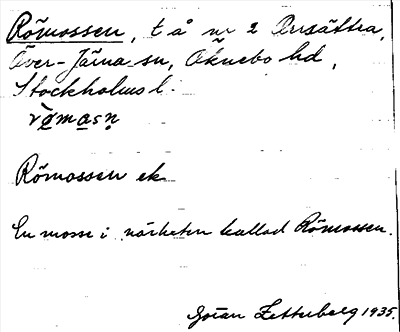 Römossen, t å nr 2 Orrsättra,
Över-Järna sn, Öknebo hd,
Stockholms l.
Römossen ek
En mosse i närheten kallad Römossen.
Göran Zetterberg 1935.